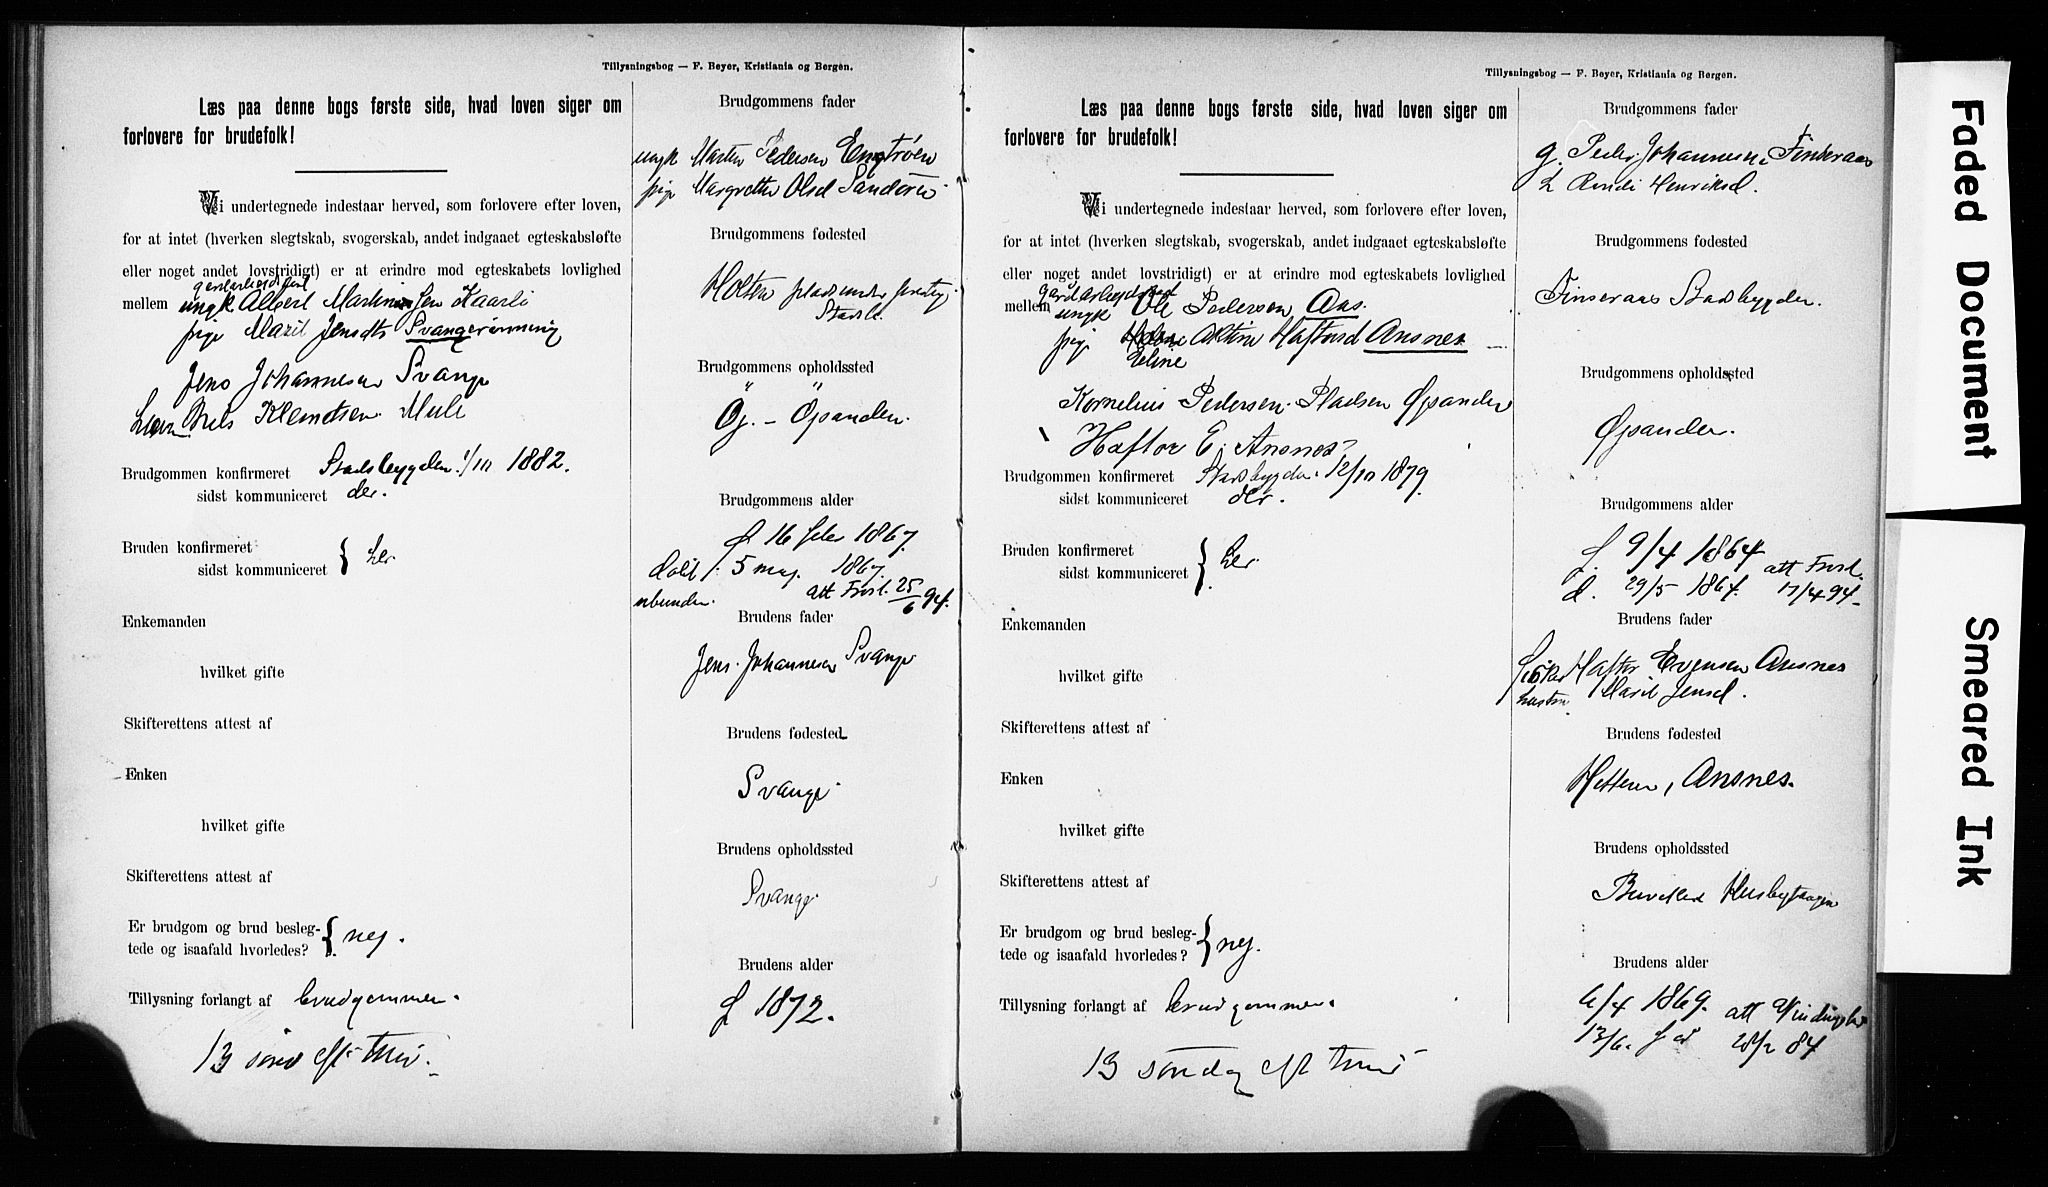 Tillysningsbog — F. Beyer, Kristiania og Bergen.
Læs paa denne bogs første side, hvad loven siger om
forlovere for brudefolk!
Vi undertegnede indestaar herved, som forlovere efter loven,
for at intet (hverken slegtskab, svogerskab, andet indgaaet egteskabsløfte
eller noget andet lovstridigt) er at erindre mod egteskabets lovlighed
mellem ungk Albert Kaarli
pige Marit Jensdtr Svangerønning
Jens Johannesen Svange
Nils Klemetsen Mule
Brudgommen konfirmeret Stadsbygden 1882.
sidst kommuniceret der.
Bruden konfirmeret
sidst kommuniceret } her
Enkemanden
hvilket gifte
Skifterettens attest af
Enken
hvilket gifte
Skifterettens attest af
Er brudgom og brud besleg-
tede og isaafald hvorledes? } nej.
Tillysning forlangt af brudgommen.
13 efter
Brudgommens fader
ungk Morten Pedersen Engtrøen
pige Olsd Sandøren
Brudgommens fødested
Holten
Brudgommens opholdssted
Øj. - Øjsanden.
Brudgommens alder
16 febr 1867.
5 maj 1867
att 25/6 94.
Brudens fader
Jens Johannesen Svange
Brudens fødested
Svange
Brudens opholdssted
Svange
Brudens alder
f 1872.
Tillysningsbog — F. Beyer, Kristiania og Bergen.
Læs paa denne bogs første side, hvad loven siger om
forlovere for brudefolk!
Vi undertegnede indestaar herved, som forlovere efter loven,
for at intet (hverken slegtskab, svogerskab, andet indgaaet egteskabsløfte
eller noget andet lovstridigt) er at erindre mod egteskabets lovlighed
gårdarbejder
mellem ungk Ole Pedersen Aas.
pige Haftorsd Ansnes
Eline
Kornelius Pedersen Pladsen Øjsanden
Haftor E. Ansnes
Brudgommen konfirmeret Stadsbygden 12/10 1879.
sidst kommuniceret der.
Bruden konfirmeret
sidst kommuniceret } her
Enkemanden
hvilket gifte
Skifterettens attest af
Enken
hvilket gifte
Skifterettens attest af
Er brudgom og brud besleg-
tede og isaafald hvorledes? } nej.
Tillysning forlangt af brudgommen.
13 søndag eft
Brudgommens fader
g. Peder Johannesen Finseraas
Henriksd.
Brudgommens fødested
Finseraas Stadsbygden.
Brudgommens opholdssted
Øjsanden.
Brudgommens alder
f. 9/4 1864
d. 29/5 1864. att 17/4 94
Brudens fader
Haftor Evensen Ansnes
hustru Marit Jensd.
Brudens fødested
Hitteren, Ansnes.
Brudens opholdssted
Husbyhaugen
Brudens alder
6/4 1869. att
13/6 84
Faded Document
Smeared Ink